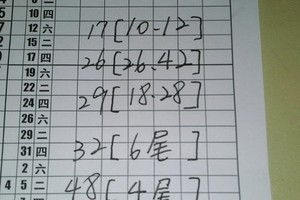 10 四
12 六 17[10-12]
15 二
17 四 26[26.42]
19 六
22 二 29[18-28]
24 四
26 六
29 二 32[6尾]
31 四
2 六
4 5 二 48[4尾]